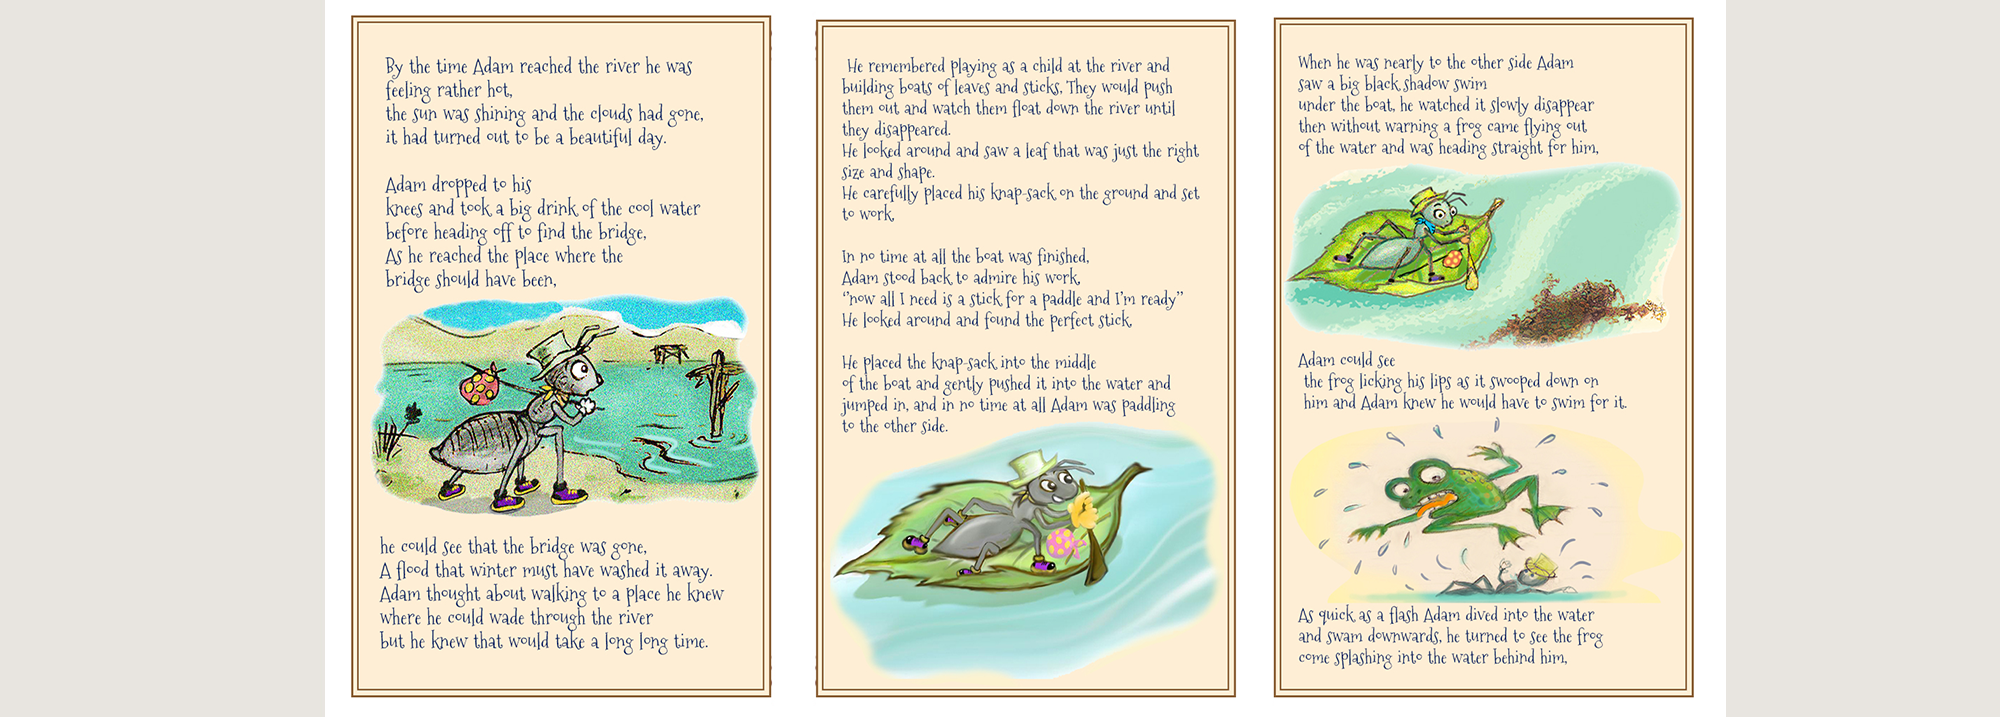 By the time Adam reached the river he was
feeling rather hot,
the sun was shining and the clouds had gone,
it had turned out to be a beautiful day.
Adam dropped to his
knees and took a big drink of the cool water
before heading off to find the bridge,
As he reached the place where the
bridge should have been,
he could see that the bridge was gone,
A flood that winter must have washed it away.
Adam thought about walking to a place he knew
where he could wade through the river
but he knew that would take a long long time.
He remembered playing as a child at the river and
building boats of leaves and sticks, They would push
them out and watch them float down the river until
they disappeared.
He looked around and saw a leaf that was just the right
size and shape.
He carefully placed his knap-sack on the ground and set
to work,
In no time at all the boat was finished,
Adam stood back to admire his work,
“now all I need is a stick for a paddle and I'm ready”
He looked around and found the perfect stick,
He placed the knap-sack into the middle
of the boat and gently pushed it into the water and
jumped in, and in no time at all Adam was paddling
to the other side.
When he was nearly to the other side Adam
saw a big black shadow swim
under the boat, he watched it slowly disappear
then without warning a frog came flying out
of the water and was heading straight for him,
Adam could see
the frog licking his lips as it swooped down on
him and Adam knew he would have to swim for it.
As quick as a flash Adam dived into the water
and swam downwards, he turned to see the frog
come splashing into the water behind him,